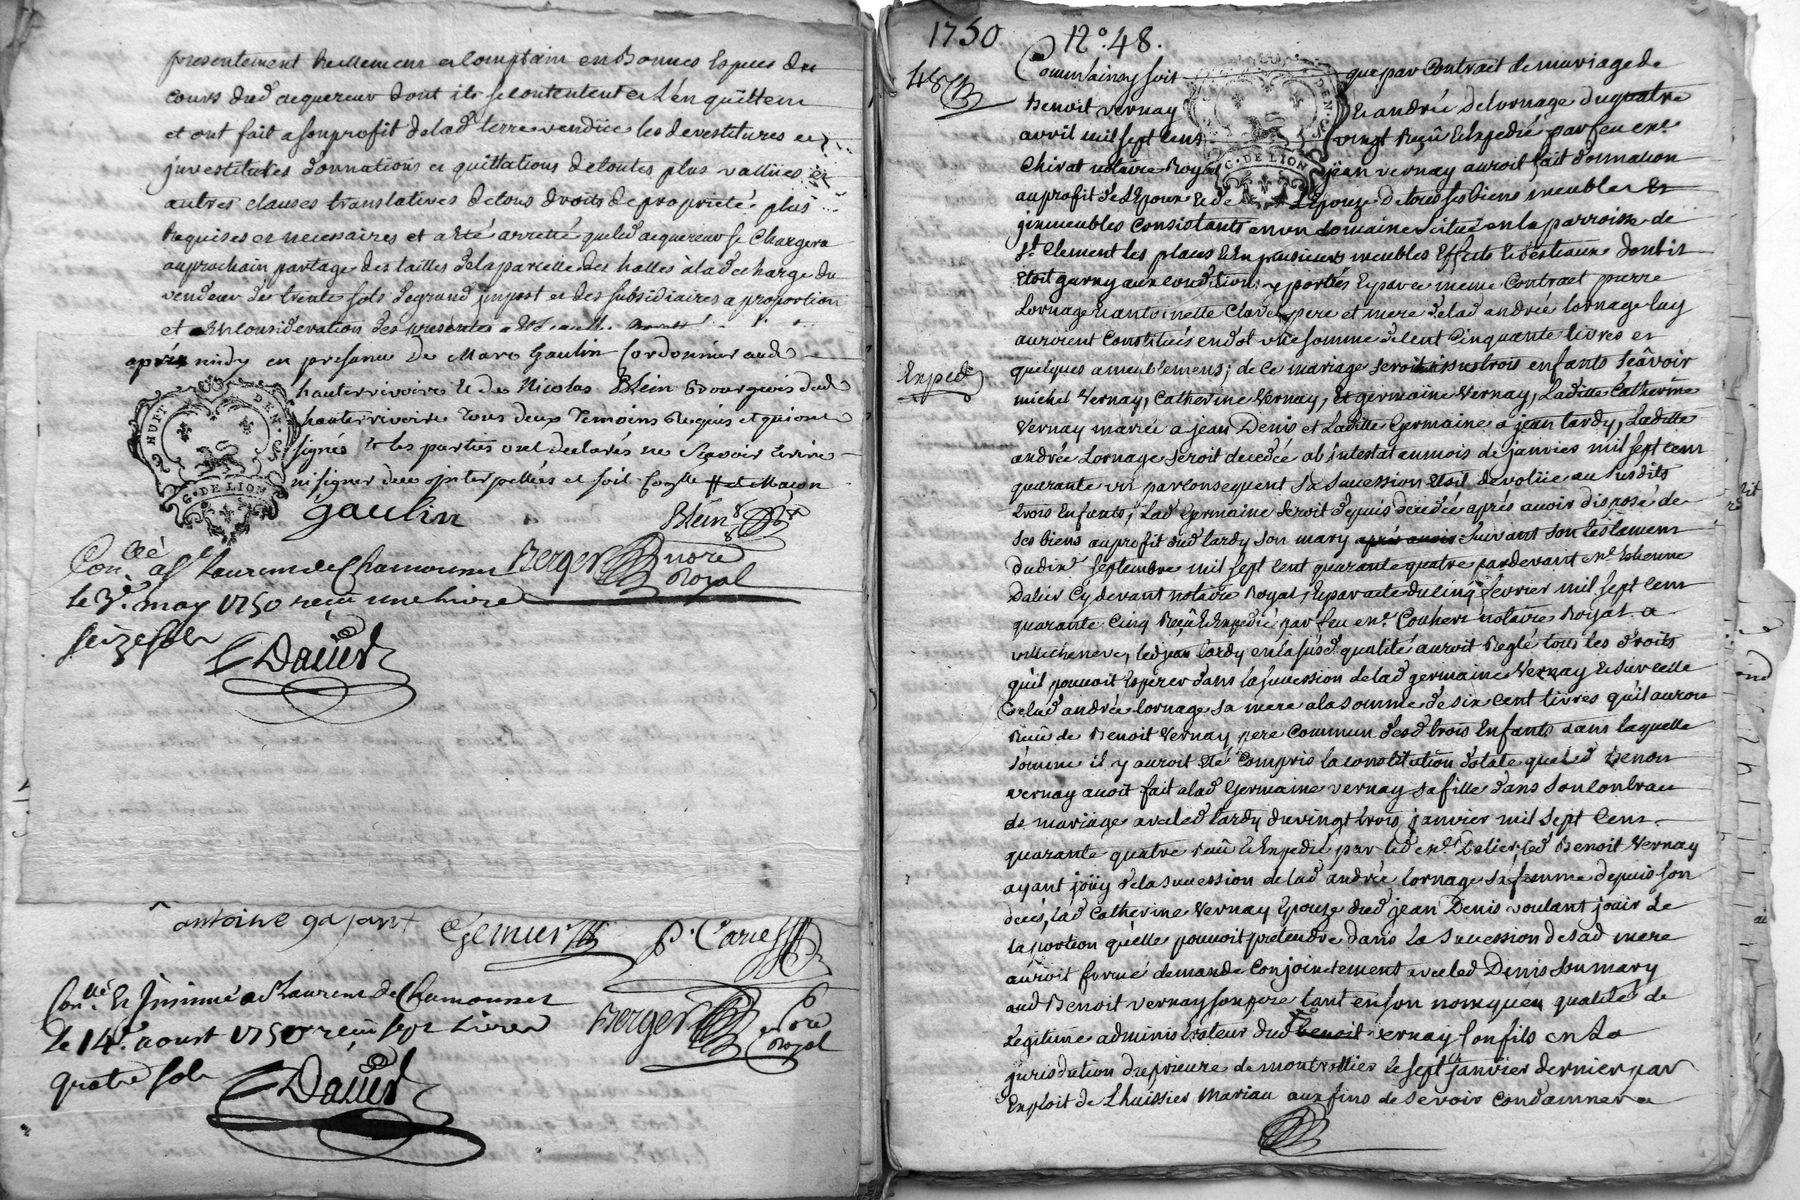 presentement reellement et comptain en bonnes especes du
cours dud acquereur dont ils se contentent et l'en quittent
et ont fait a son profit de lad terre vendüe les devestitures et
jnvestitures donnations et quittations de toutes plus vallües et
autres clauses translatives de tous droits de proprieté plus
requises et necessaires et a eté arretté que led acquereur se chargera
au prochain partage des tailles de la parcelle des halles à la decharge du
vendeur de trente sols de grand jmpost et des subsidiaires a proportion
et en consideration des presentes
après midy en presence de Marc Gaulin Cordonnier aud
hauterivoire et de Nicolas Blein Bourgeois dud
hauterivoire tous deux temoins requis et qui ont
signé et les parties ont declarés ne sçavoir ecrire
ni signer de ce interpellées et soit
NUIT DEN
G. DE LION
gaulin
Blein
Con.llé a St Laurens de Chamousset
Berger nore Royal
le 3e. may 1750 reçu une livre
seize sols
David
antoine gajant
Gemier
P. Carret
Con.llé et jnsinué a St Laurens de Chamousset
Berger nore Royal
le 14e. aoust 1750 reçu sept livres
quatre sols
David
1750 No. 48.
48
Comme ainsy soit que par Contrait de mariage de
Benoit Vernay et andrée de lornage du quatre
avril mil sept cens vingt Reçû et Expedié par feu me.
Chirat notaire Royal jean vernay auroit fait donnation
au profit de l'Epoux et de l'Epouze de tous ses biens meubles et
jmmeubles Consistants en un domaine situé en la parroisse de
St. Clement les places et en plusieurs meubles Effets et bestiaux dont il
etoit garny aux conditions y portés et par ce meme Contract pierre
Lornage et antoinette Clavel pere et mere de lad andrée lornage luy
auroient Constitués en dot une somme de cent cinquante livres et
quelques ameublemens; de ce mariage seroit issus trois enfants sçavoir
Exped
michel Vernay, Catherine Vernay, et germaine Vernay, Ladite Catherine
Vernay mariée a jean Denis et Ladite Germaine a jean tardy, Ladite
andrée Lornage seroit decedée ab jntestat au mois de janvier mil sept cent
quarante un par consequent sa succession etoit devolüe au susdits
trois Enfants, Lad Germaine seroit depuis decedée après avoir disposé de
ses biens au profit dud tardy son mary après avoir suivant son testament
du dixe. septembre mil sept cent quarante quatre pardevant me. Estienne
Dalier Cy devant notaire Royal, et par acte du cinq fevrier mil sept cent
quarante Cinq Reçû et Expedié par feu me. Couhert notaire Royal a
villecheneve, led jean tardy en la susd. qualité auroit Reglé tous les droits
qu'il pouvoit Esperer dans la succession de lad germaine Vernay et sur celle
de lad andrée lornage sa mere a la somme de six cent livres qu'il auroit
Reçû de Benoit Vernay pere Commun desd trois Enfants dans laquelle
somme il y auroit eté Compris la constitution dotale que led Benoit
vernay avoit fait a lad Germaine vernay sa fille dans son contrat
de mariage avec led tardy du vingt trois janvier mil sept Cens
quarante quatre reçû et Expedié par led me. Dalier, led Benoit Vernay
ayant joüy de la succession de lad andrée lornage sa femme depuis son
decés, Lad Catherine Vernay Epouze dud jean Denis voulant jouir de
la portion qu'elle pouvoit pretendre dans la succession de sad mere
auroit formé demande Conjointement avec led Denis son mary
aud Benoit vernay son pere tant en son nom qu'en qualité de
Legitime administrateur dud benoit vernay son fils en la
jurisdiction du prieuré de montrottier le sept janvier dernier par
Exploit de L'huissier Mariau aux fins de se voir Condamner a